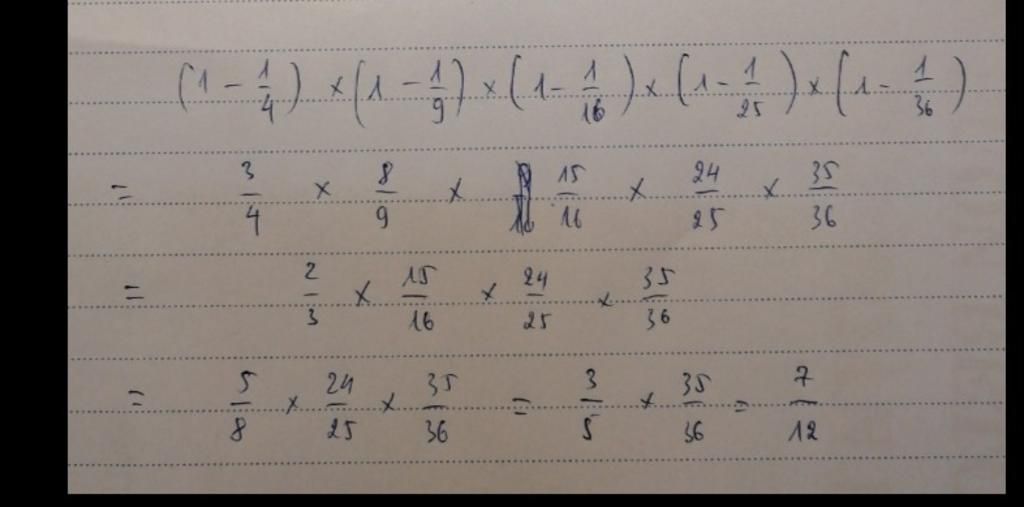 (1 - 1/4) × (1 - 1/9) × (1 - 1/16) × (1 - 1/25) × (1 - 1/36)
= 3/4 × 8/9 × 15/16 × 24/25 × 35/36
= 2/3 × 15/16 × 24/25 × 35/36
= 5/8 × 24/25 × 35/36 = 3/5 × 35/36 = 7/12